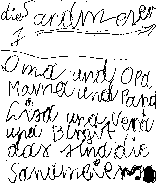 die Sandmeier
Oma und Opa
Mama und Papa
Lisa und Vera
und Birgit
das sind die
Sandmeiers